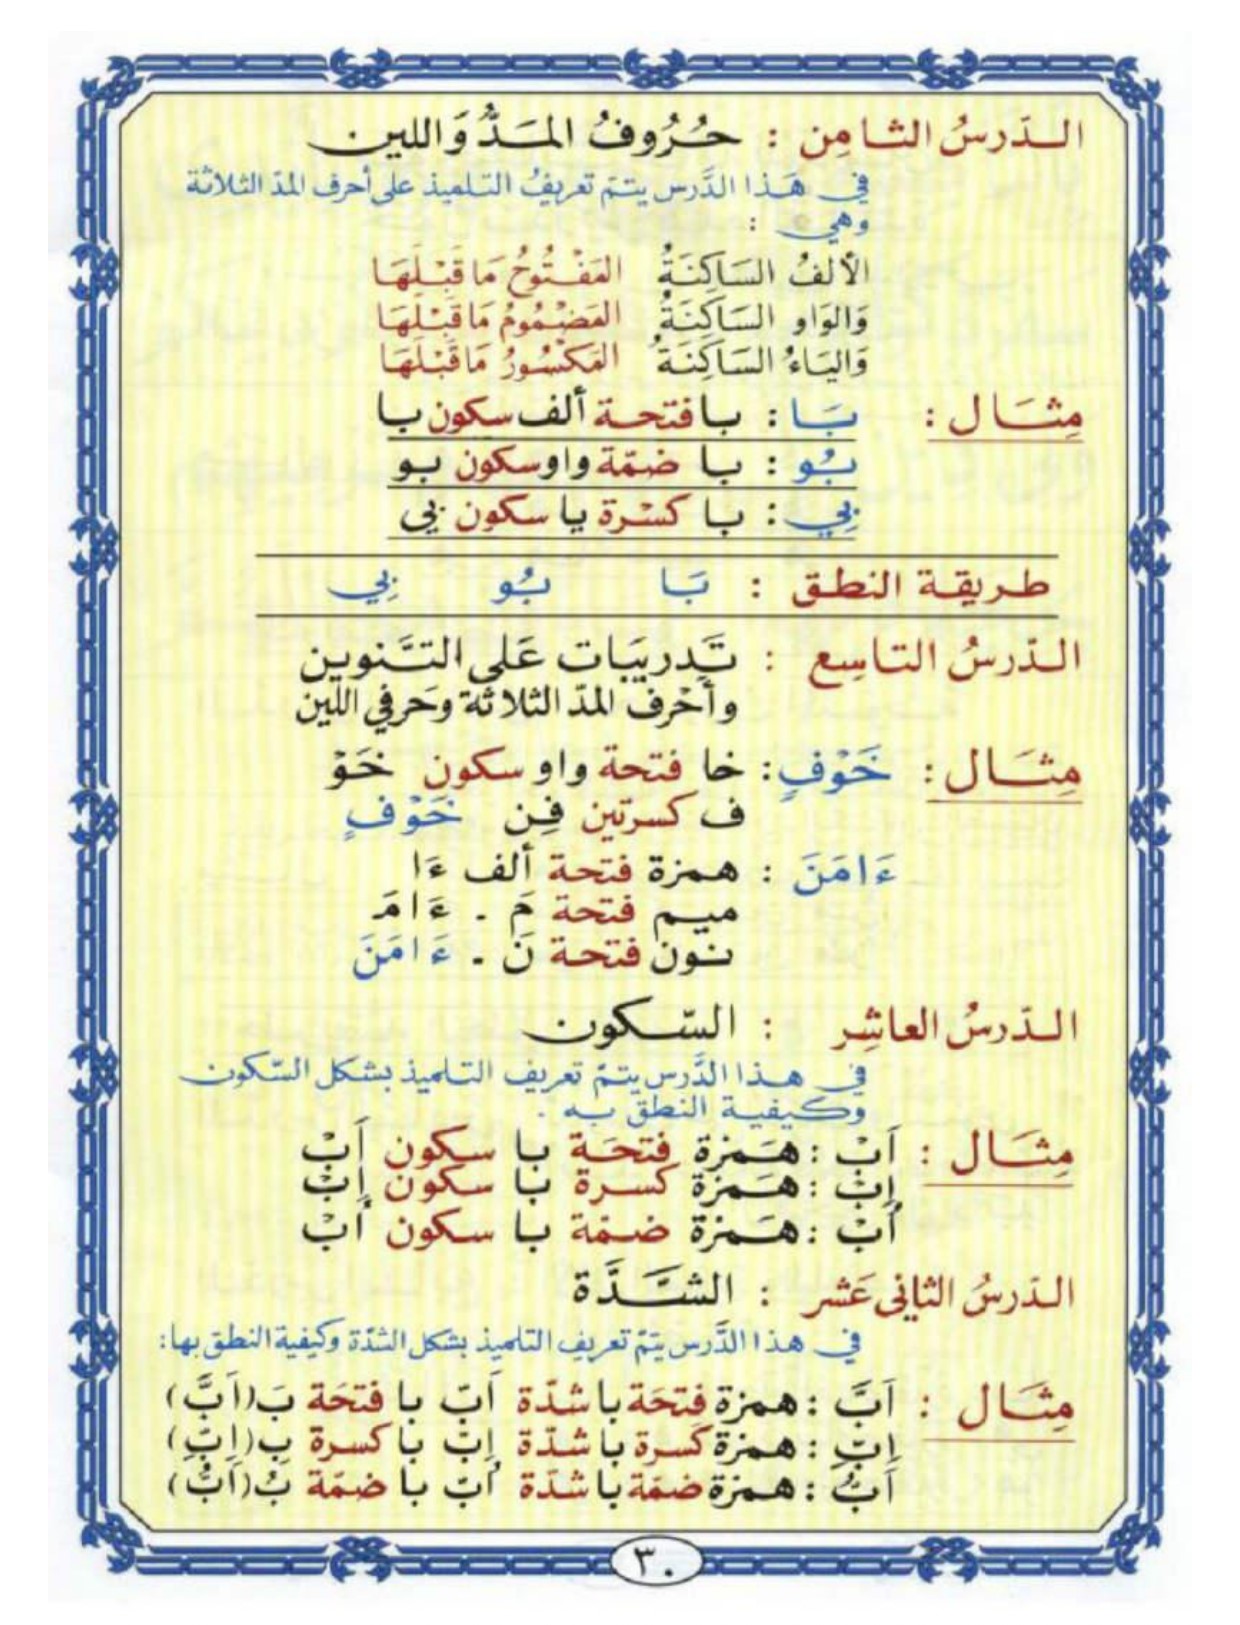 الدّرسُ الثامِن : حُرُوفُ المَدُّ وَاللين
في هَذا الدَّرس يتمّ تعريفُ التلميذ على أحرف المدّ الثلاثة
وهي :
الألفُ السَاكِنَةُ المَفْتُوحُ مَا قَبْلَهَا
وَالوَاو السَاكِنَةُ المَضْمُومُ مَا قَبْلَهَا
وَاليَاءُ السَاكِنَةُ المَكسُورُ مَا قَبْلَهَا
مِثَال : بَا : با فتحة ألف سكون با
بُو : با ضمّة واو سكون بو
بِي : با كسْرة يا سكون بي
طريقة النطق : بَا بُو بِي
الدّرسُ التاسِع : تَدريبَات عَلى التَّنوين
وأحْرف المدّ الثلاثة وحَرفي اللين
مِثَال : خَوْفٍ : خا فتحة واو سكون خَوْ
ف كسرتين فِن خَوْفٍ
ءَامَنَ : همزة فتحة ألف ءَا
ميم فتحة مَ - ءَامَ
نون فتحة نَ - ءَامَنَ
الدّرسُ العاشِر : السّكون
في هذا الدَّرس يتمّ تعريف التلميذ بشكل السّكون
وكيفية النطق به .
مِثَال : اَبْ : هَمزة فتحَة با سكون اَبْ
اِبْ : هَمزة كسرة با سكون اِبْ
اُبْ : هَمزة ضمّة با سكون اُبْ
الدّرسُ الثاني عَشر : الشَّدَّة
في هذا الدَّرس يتمّ تعريف التلميذ بشكل الشدّة وكيفية النطق بها :
مِثَال : اَبَّ : همزة فتحَة با شدّة اَبّ با فتحَة بَ (اَبَّ)
اِبِّ : همزة كسرة با شدّة اِبّ با كسرة بِ (اِبِّ)
اُبُّ : همزة ضمّة با شدّة اُبّ با ضمّة بُ (اُبُّ)
٣٠